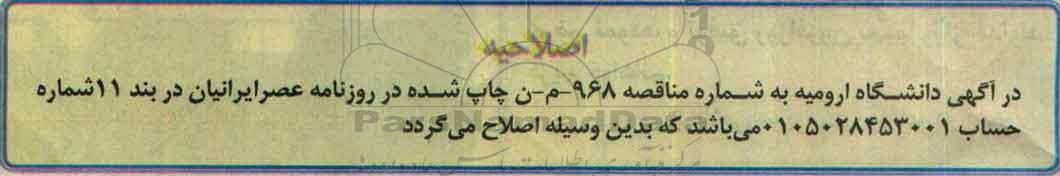 اصلاحیه
در آگهی دانشگاه ارومیه به شماره مناقصه ۹۶۸-م-ن چاپ شده در روزنامه عصرایرانیان در بند ۱۱شماره
حساب ۰۱۰۵۰۲۸۴۵۳۰۰۱می‌باشد که بدین وسیله اصلاح می‌گردد